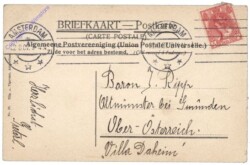 AMSTERDAM
BRIEFKAART — Postkarte
(CARTE POSTALE)
AMSTERDAM
AMSTERDAM
Algemeene Postvereeniging (Union Postale Universelle.)
Zijde voor het adres bestemd.
Baron J. Ripp
Altmünster bei Gmünden
Ober-Österreich.
Villa Daheim